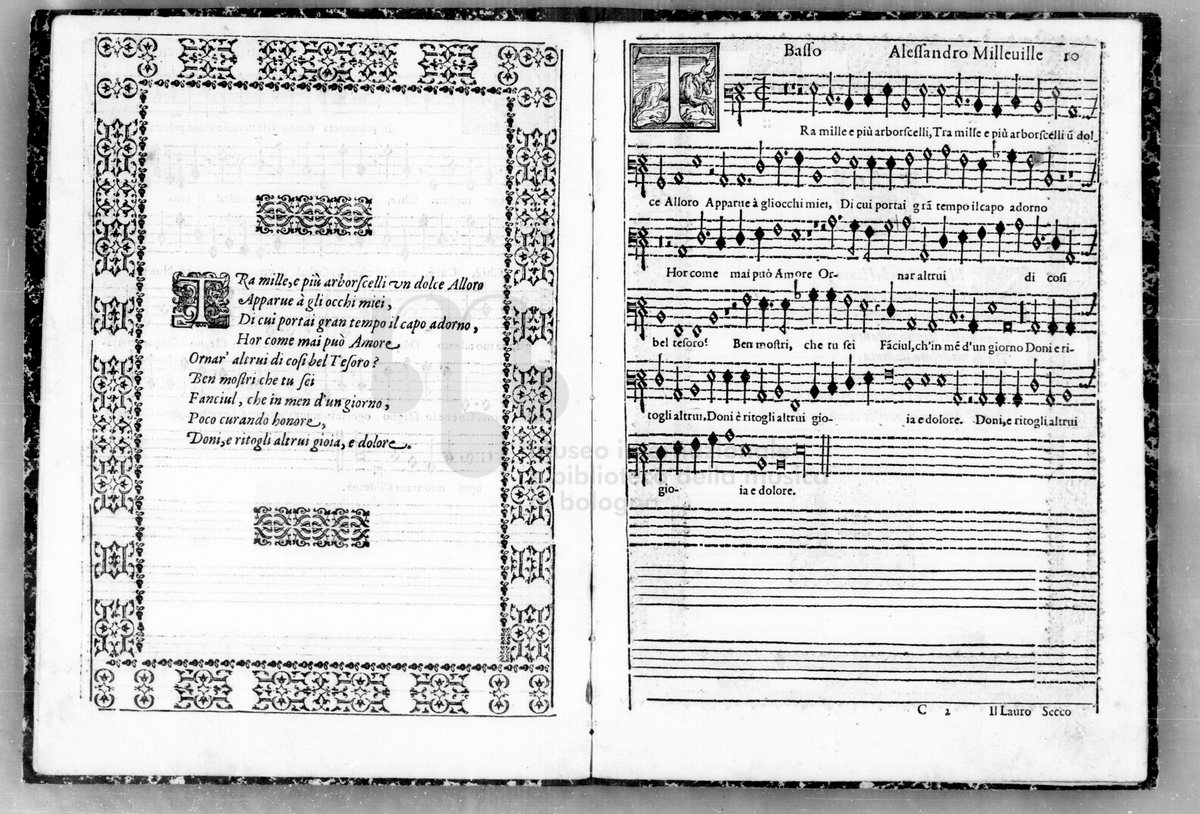 TRa mille, e più arborſcelli vn dolce Alloro
Apparue à gli occhi miei,
Di cui portai gran tempo il capo adorno,
Hor come mai può Amore
Ornar' altrui di coſi bel Teſoro?
Ben moſtri che tu ſei
Fanciul, che in men d'un giorno,
Poco curando honore,
Doni, e ritogli altrui gioia, e dolore.
Baſſo Aleſſandro Milleuille 10
TRa mille e più arborſcelli, Tra mille e più arborſcelli ũ dol
ce Alloro Apparue à gliocchi miei, Di cui portai grã tempo il capo adorno
Hor come mai può Amore Or- nar altrui di coſi
bel teſoro? Ben moſtri, che tu ſei Fãciul, ch'in mẽ d'un giorno Doni e ri-
togli altrui, Doni è ritogli altrui gio- ia e dolore. Doni, e ritogli altrui
gio- ia e dolore.
C 2 Il Lauro Secco
museo internazionale
biblioteca della musica
bologna